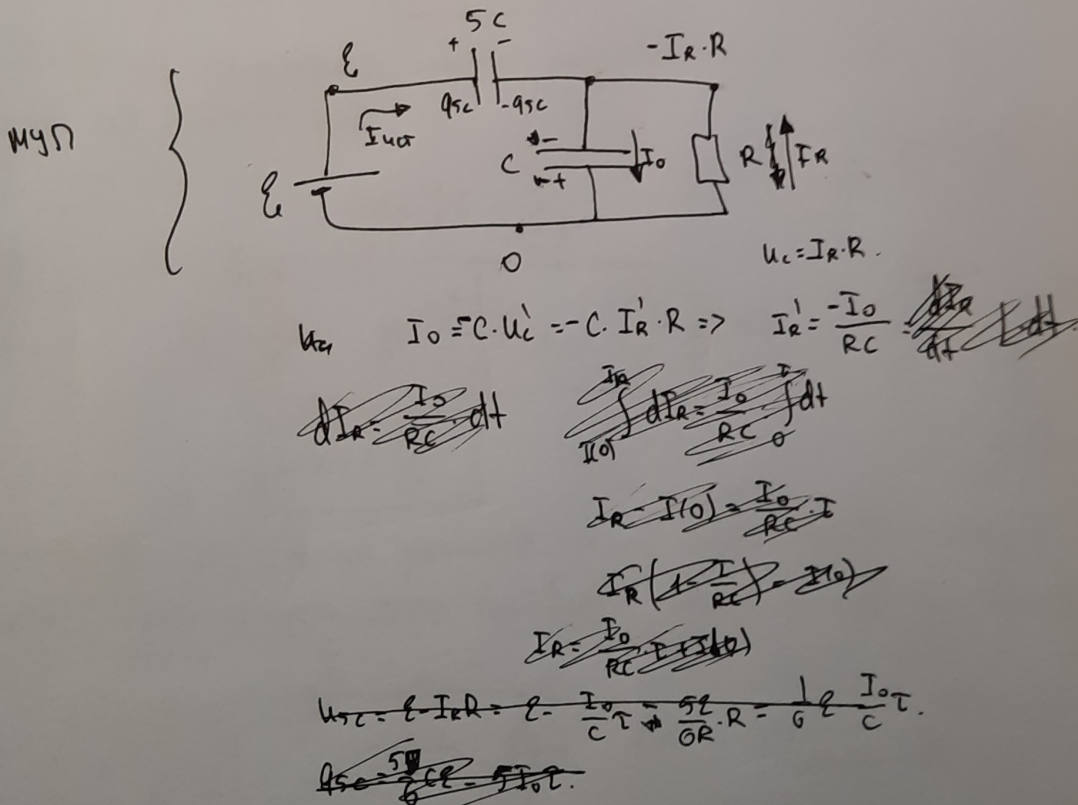 5C
+ -
ℰ
-I_R·R
МУП
q_5C -q_5C
I_ист
C - + I_0 R I_R
ℰ
0
U_C = I_R·R.
I_0 = -C·U_C' = -C·I_R'·R => I_R' = -I_0/RC = dI_R/dt
dI_R = I_0/RC · dt ∫dI_R = I_0/RC · ∫dt
I_R - I(0) = I_0/RC · τ
I_R = I_0/RC · τ + I(0)
U_5C = ℰ - I_R R = ℰ - I_0/C τ - 5ℰ/6R · R = 1/6 ℰ I_0/C τ.
q_5C = 5/6 Cℰ - 5I_0τ.